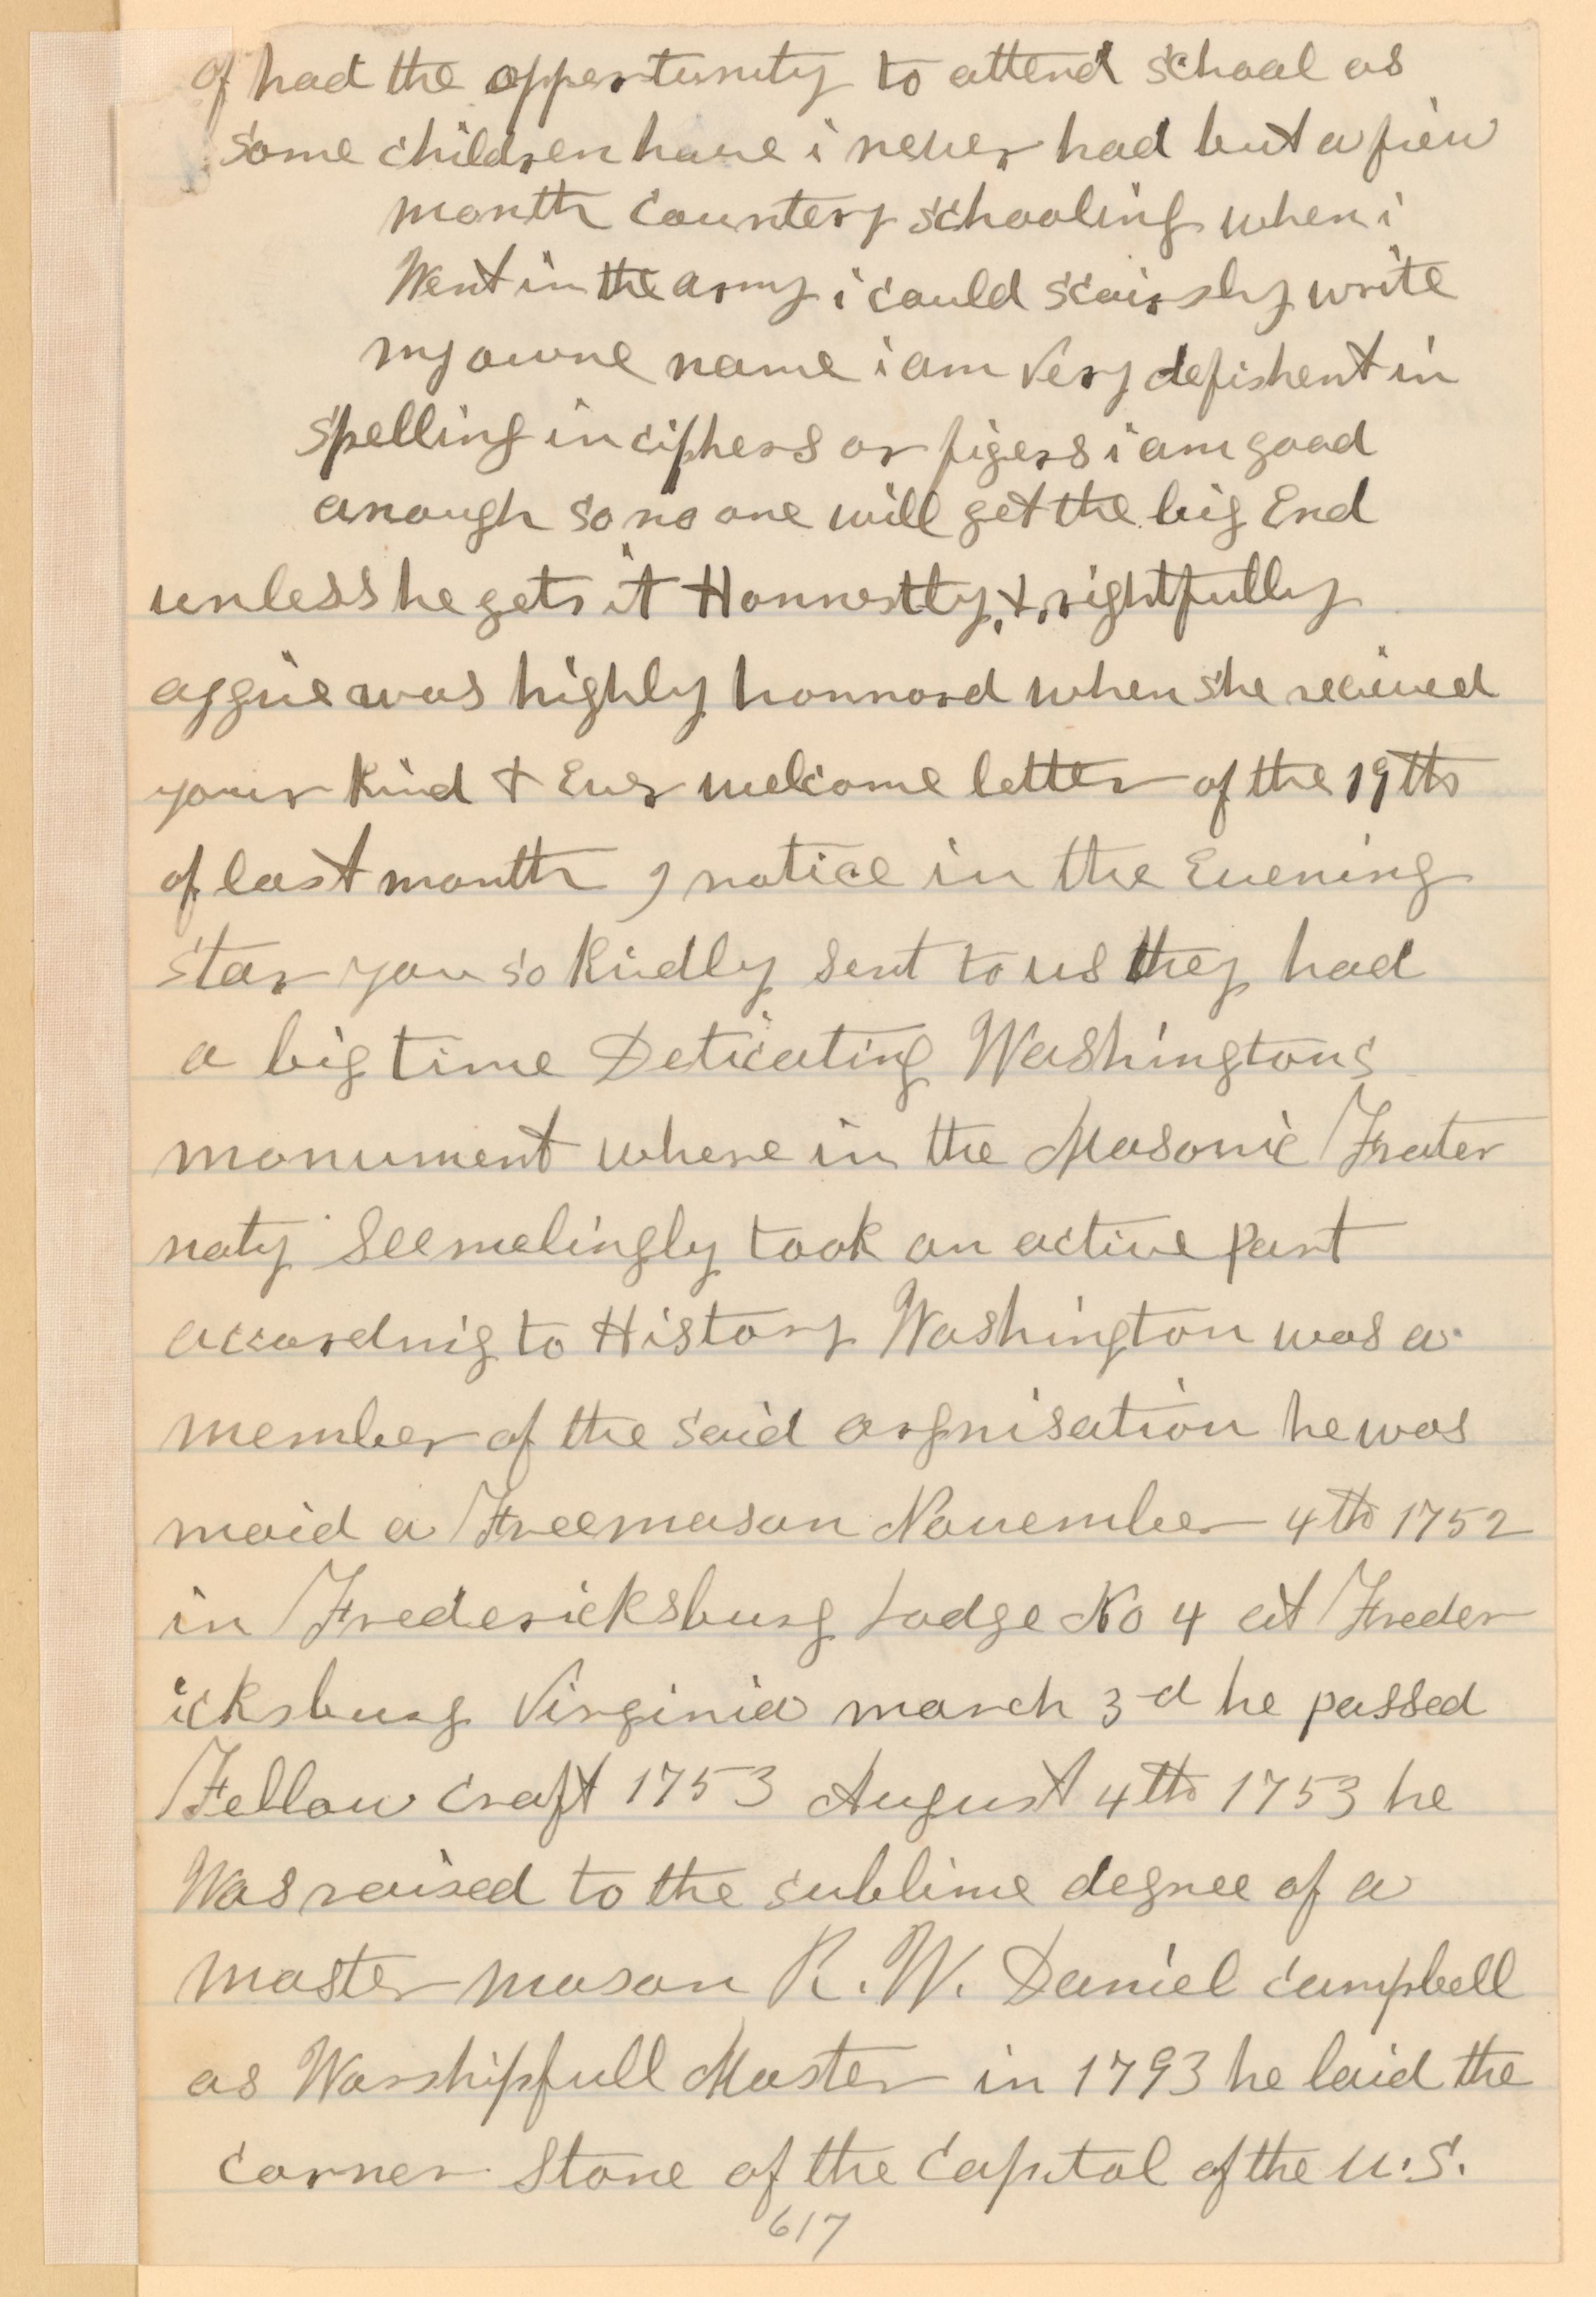 of had the oppertunity to attend school as
some children have i never had but a fiew
month countery schooling when i
Went in the army i could scairsly write
my owne name i am Very defishent in
spelling in ciphers or figers i am good
anough so no one will get the big End
unless he gets it Honnestly, & rightfully
aggie was highly honnord when she recieved
your Kind & Ever welcome letter of the 19th
of last month I notice in the Evening
star you so Kindly sent to us they had
a big time Deticating Washingtons
monument where in the Masonic Frater
naty Seemelingly took an active part
according to History Washington was a
member of the said orgnisation he was
maid a Freemason November 4th 1752
in Fredericksburg Lodge No 4 at Freder
icksburg Virginia march 3d he passed
Fellow craft 1753 August 4th 1753 he
Was raised to the sublime degree of a
master mason R. W. Daniel campbell
as Worshipfull Master in 1793 he laid the
corner Stone of the Capital of the U.S.
617